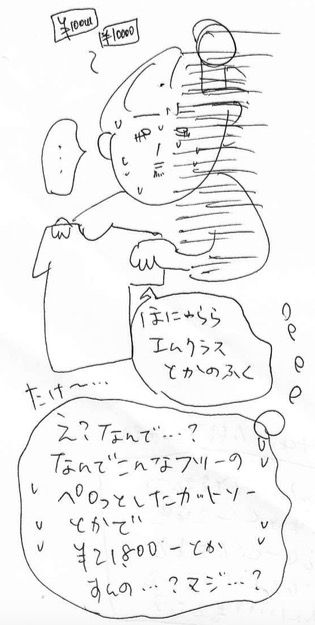 ¥10000
¥10000
・・・
ほにゃらら
エムクラス
とかのふく
たけ〜…
え?なんで…?
なんでこんなフツーの
ペロっとしたカットソー
とかで
¥21,800ーとか
すんの…?マジ…?